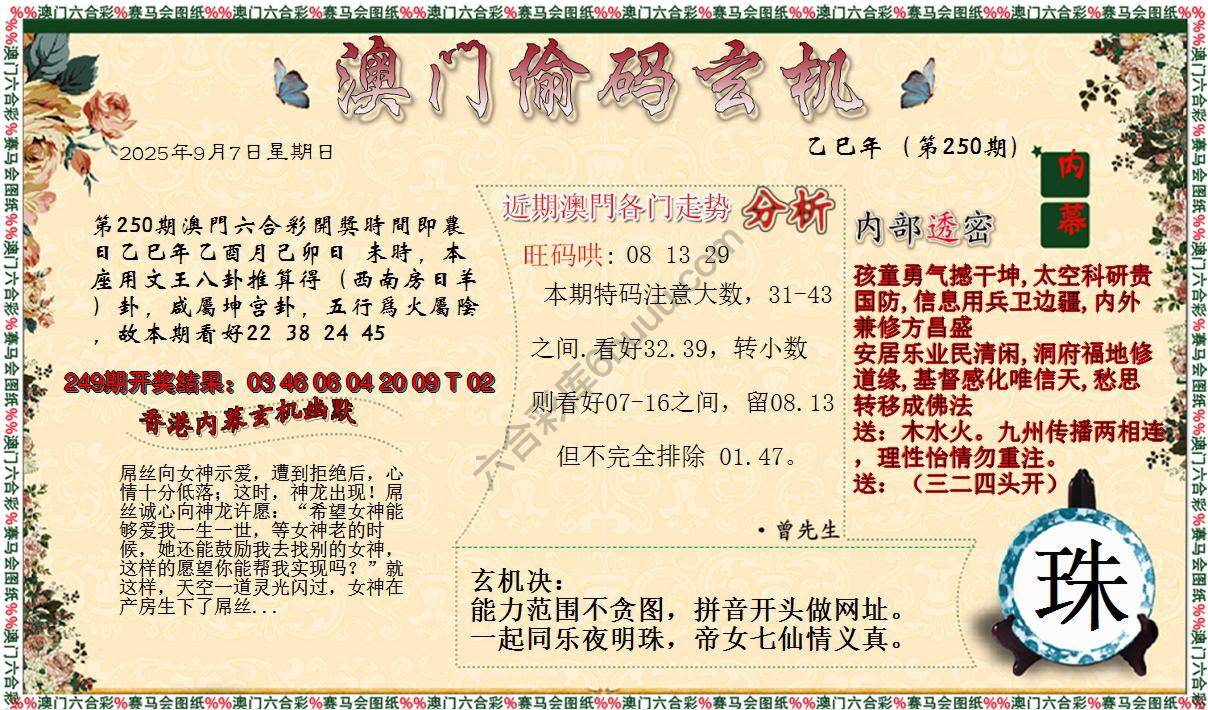 %%澳门六合彩%赛马会图纸%%澳门六合彩%赛马会图纸%%澳门六合彩%赛马会图纸%%澳门六合彩%赛马会图纸%%澳门六合彩%赛马会图纸%%澳门六合彩%赛马会图纸%%
澳门偷码玄机
2025年9月7日星期日
乙巳年（第250期）
内
幕
第250期澳門六合彩開獎時間即農
日乙巳年乙酉月己卯日 未時，本
座用文王八卦推算得（西南房日羊
）卦，咸屬坤宫卦，五行爲火屬陰
，故本期看好22 38 24 45
249期开奖结果：03 46 06 04 20 09 T 02
香港内幕玄机幽默
屌丝向女神示爱，遭到拒绝后，心
情十分低落；这时，神龙出现！屌
丝诚心向神龙许愿：“希望女神能
够爱我一生一世，等女神老的时
候，她还能鼓励我去找别的女神，
这样的愿望你能帮我实现吗？”就
这样，天空一道灵光闪过，女神在
产房生下了屌丝...
近期澳門各门走势 分析
旺码哄: 08 13 29
本期特码注意大数，31-43
之间.看好32.39，转小数
则看好07-16之间，留08.13
但不完全排除 01.47。
·曾先生
内部透密
孩童勇气撼干坤,太空科研贵
国防,信息用兵卫边疆,内外
兼修方昌盛
安居乐业民清闲,洞府福地修
道缘,基督感化唯信天,愁思
转移成佛法
送：木水火。九州传播两相连
，理性怡情勿重注。
送：（三二四头开）
玄机决：
能力范围不贪图，拼音开头做网址。
一起同乐夜明珠，帝女七仙情义真。
珠